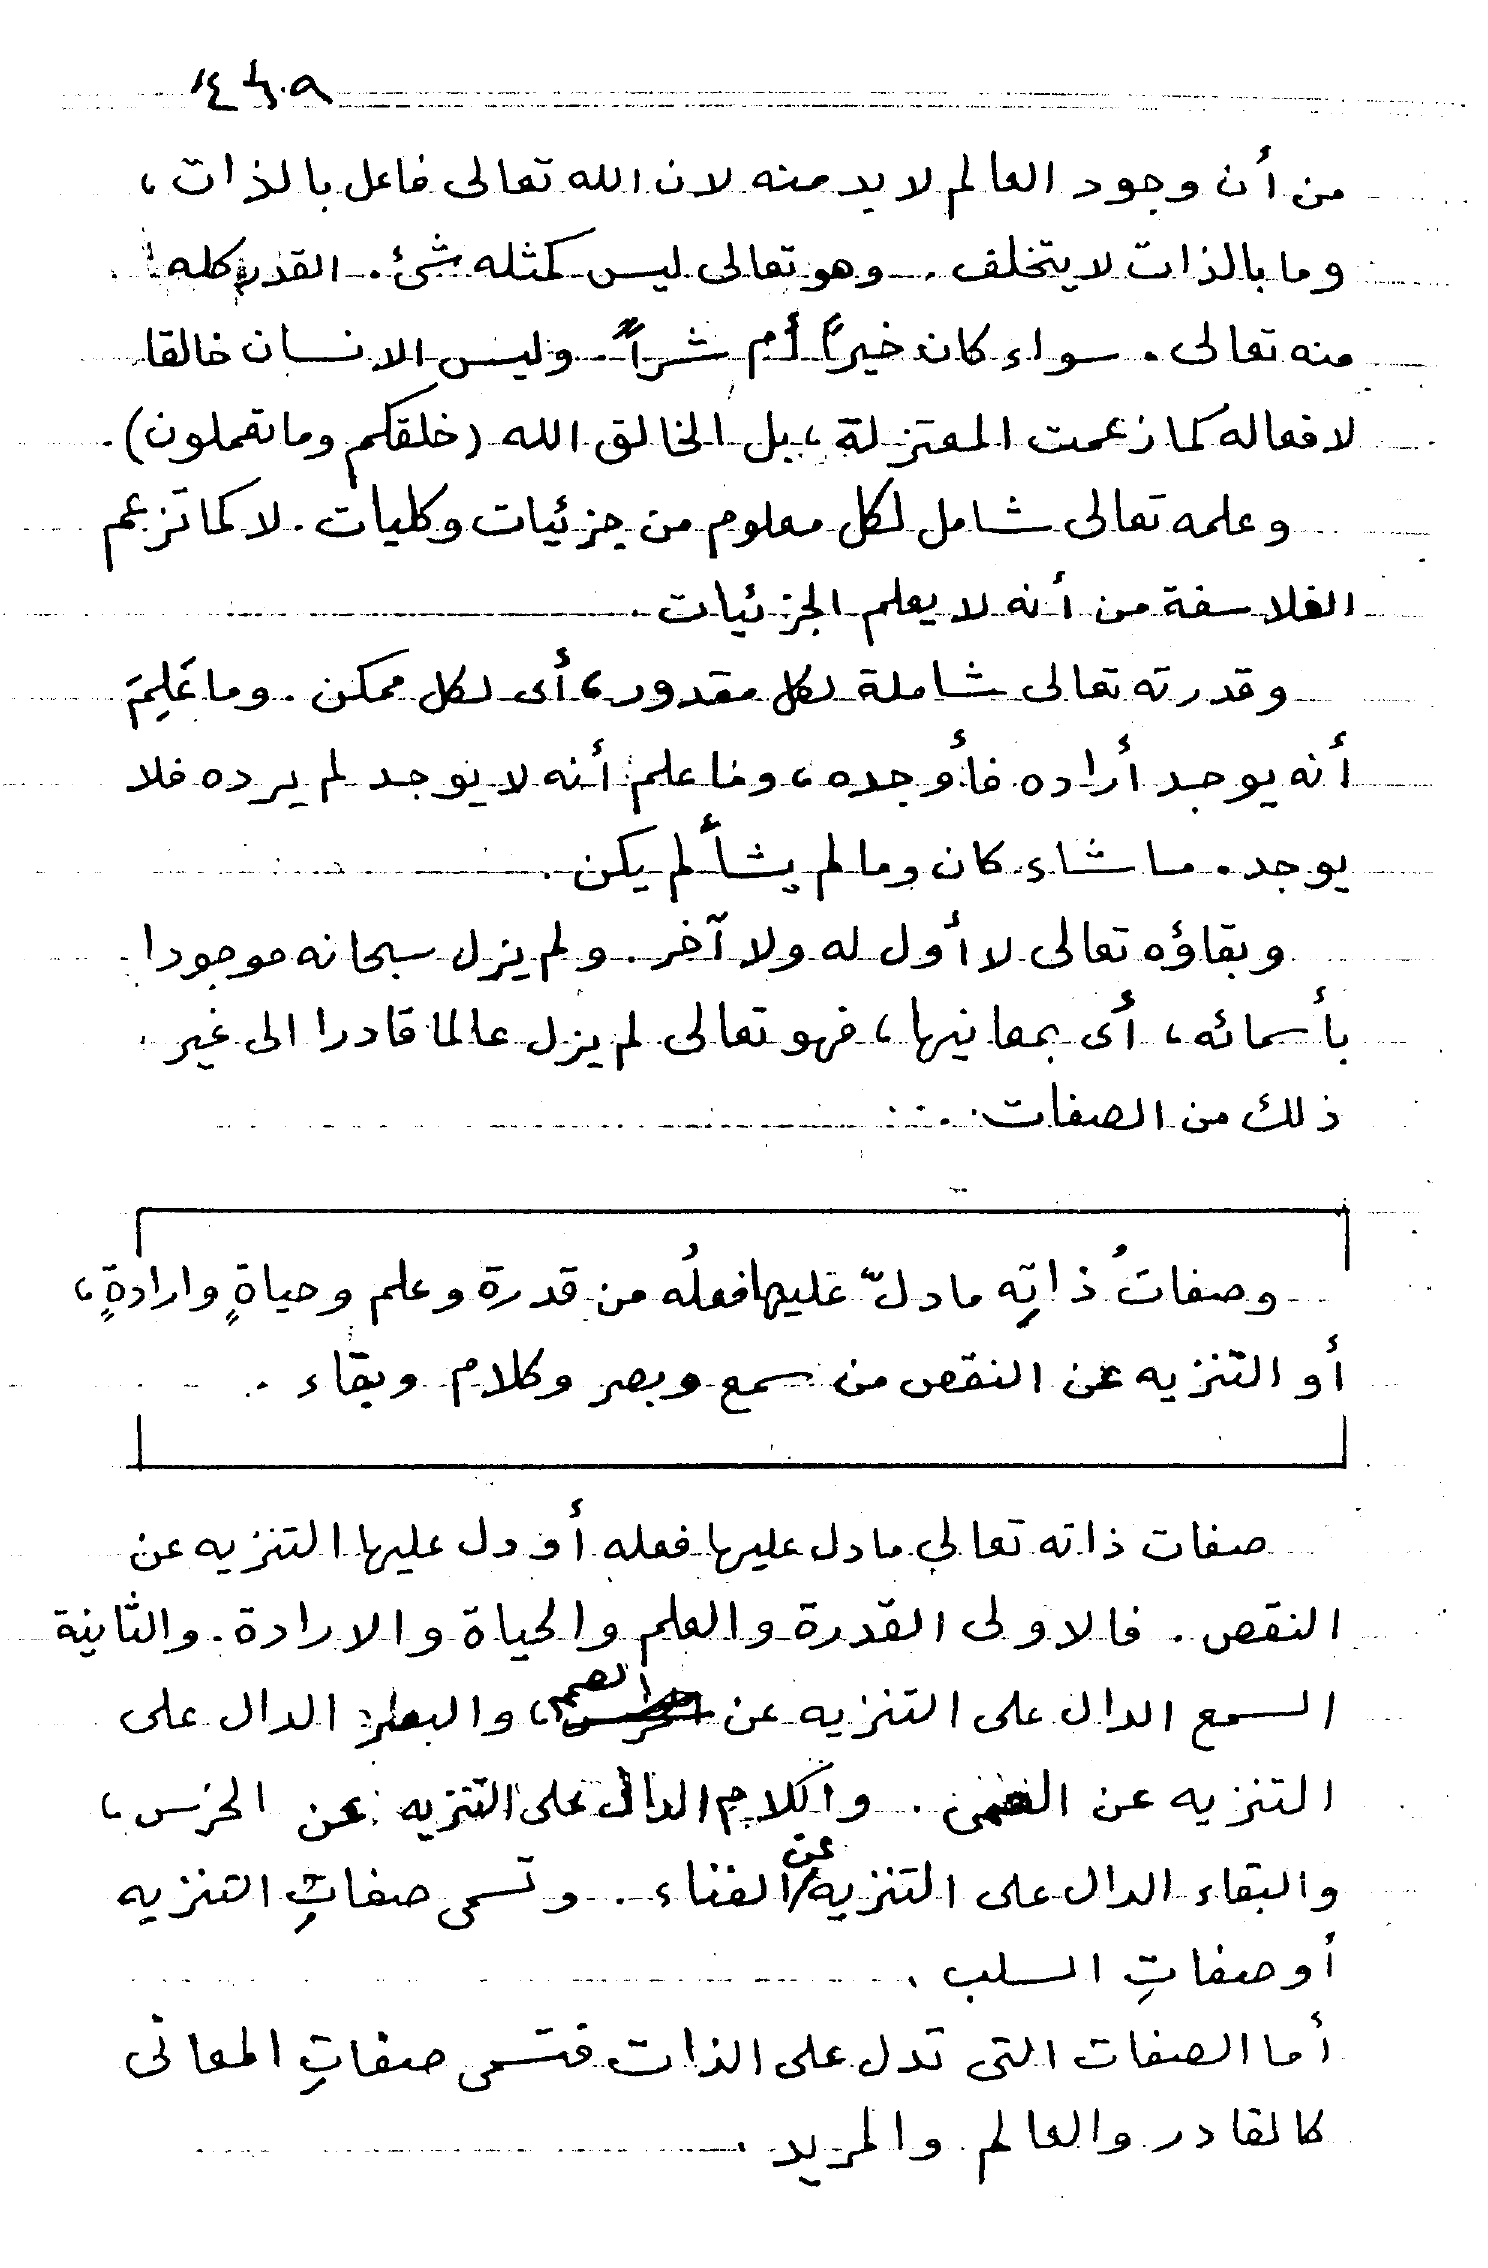 من أن وجود العالم لا بد منه لان الله تعالى فاعل بالذات ،
وما بالذات لا يتخلف . وهو تعالى ليس كمثله شئ . القدر كله
منه تعالى . سواء كان خيراً أم شراً . وليس الانسان خالقا
لافعاله كما زعمت المعتزلة ، بل الخالق الله (خلقكم وما تعملون) .
وعلمه تعالى شامل لكل معلوم من جزئيات وكليات . لا كما تزعم
الفلاسفة من أنه لا يعلم الجزئيات .
وقدرته تعالى شاملة لكل مقدور ، أى لكل ممكن . وما عَلِمَ
أنه يوجد أراده فأوجده ، وما علم أنه لا يوجد لم يرده فلا
يوجد . ما شاء كان وما لم يشأ لم يكن .
وبقاؤه تعالى لا أول له ولا آخر . ولم يزل سبحانه موجودا
بأسمائه ، أى بمعانيها ، فهو تعالى لم يزل عالما قادرا الى غير
ذلك من الصفات .
وصفاتُ ذاتِه ما دلّ عليها فعلُه من قدرة وعلم وحياةٍ وارادةٍ ،
أو التنزيه عن النقص من سمع وبصر وكلام وبقاء .
صفات ذاته تعالي ما دل عليها فعله أو دل عليها التنزيه عن
النقص . فالاولى القدرة والعلم والحياة والارادة . والثانية
السمع الدال على التنزيه عن الصمم ، والبصر الدال على
التنزيه عن العمى . والكلام الدال على التنزيه عن الخرس ،
والبقاء الدال على التنزيه عن الفناء . وتسمى صفاتِ التنزيه
أو صفاتِ السلب .
أما الصفات التى تدل على الذات فتسمى صفاتِ المعانى
كالقادر والعالم والمريد .